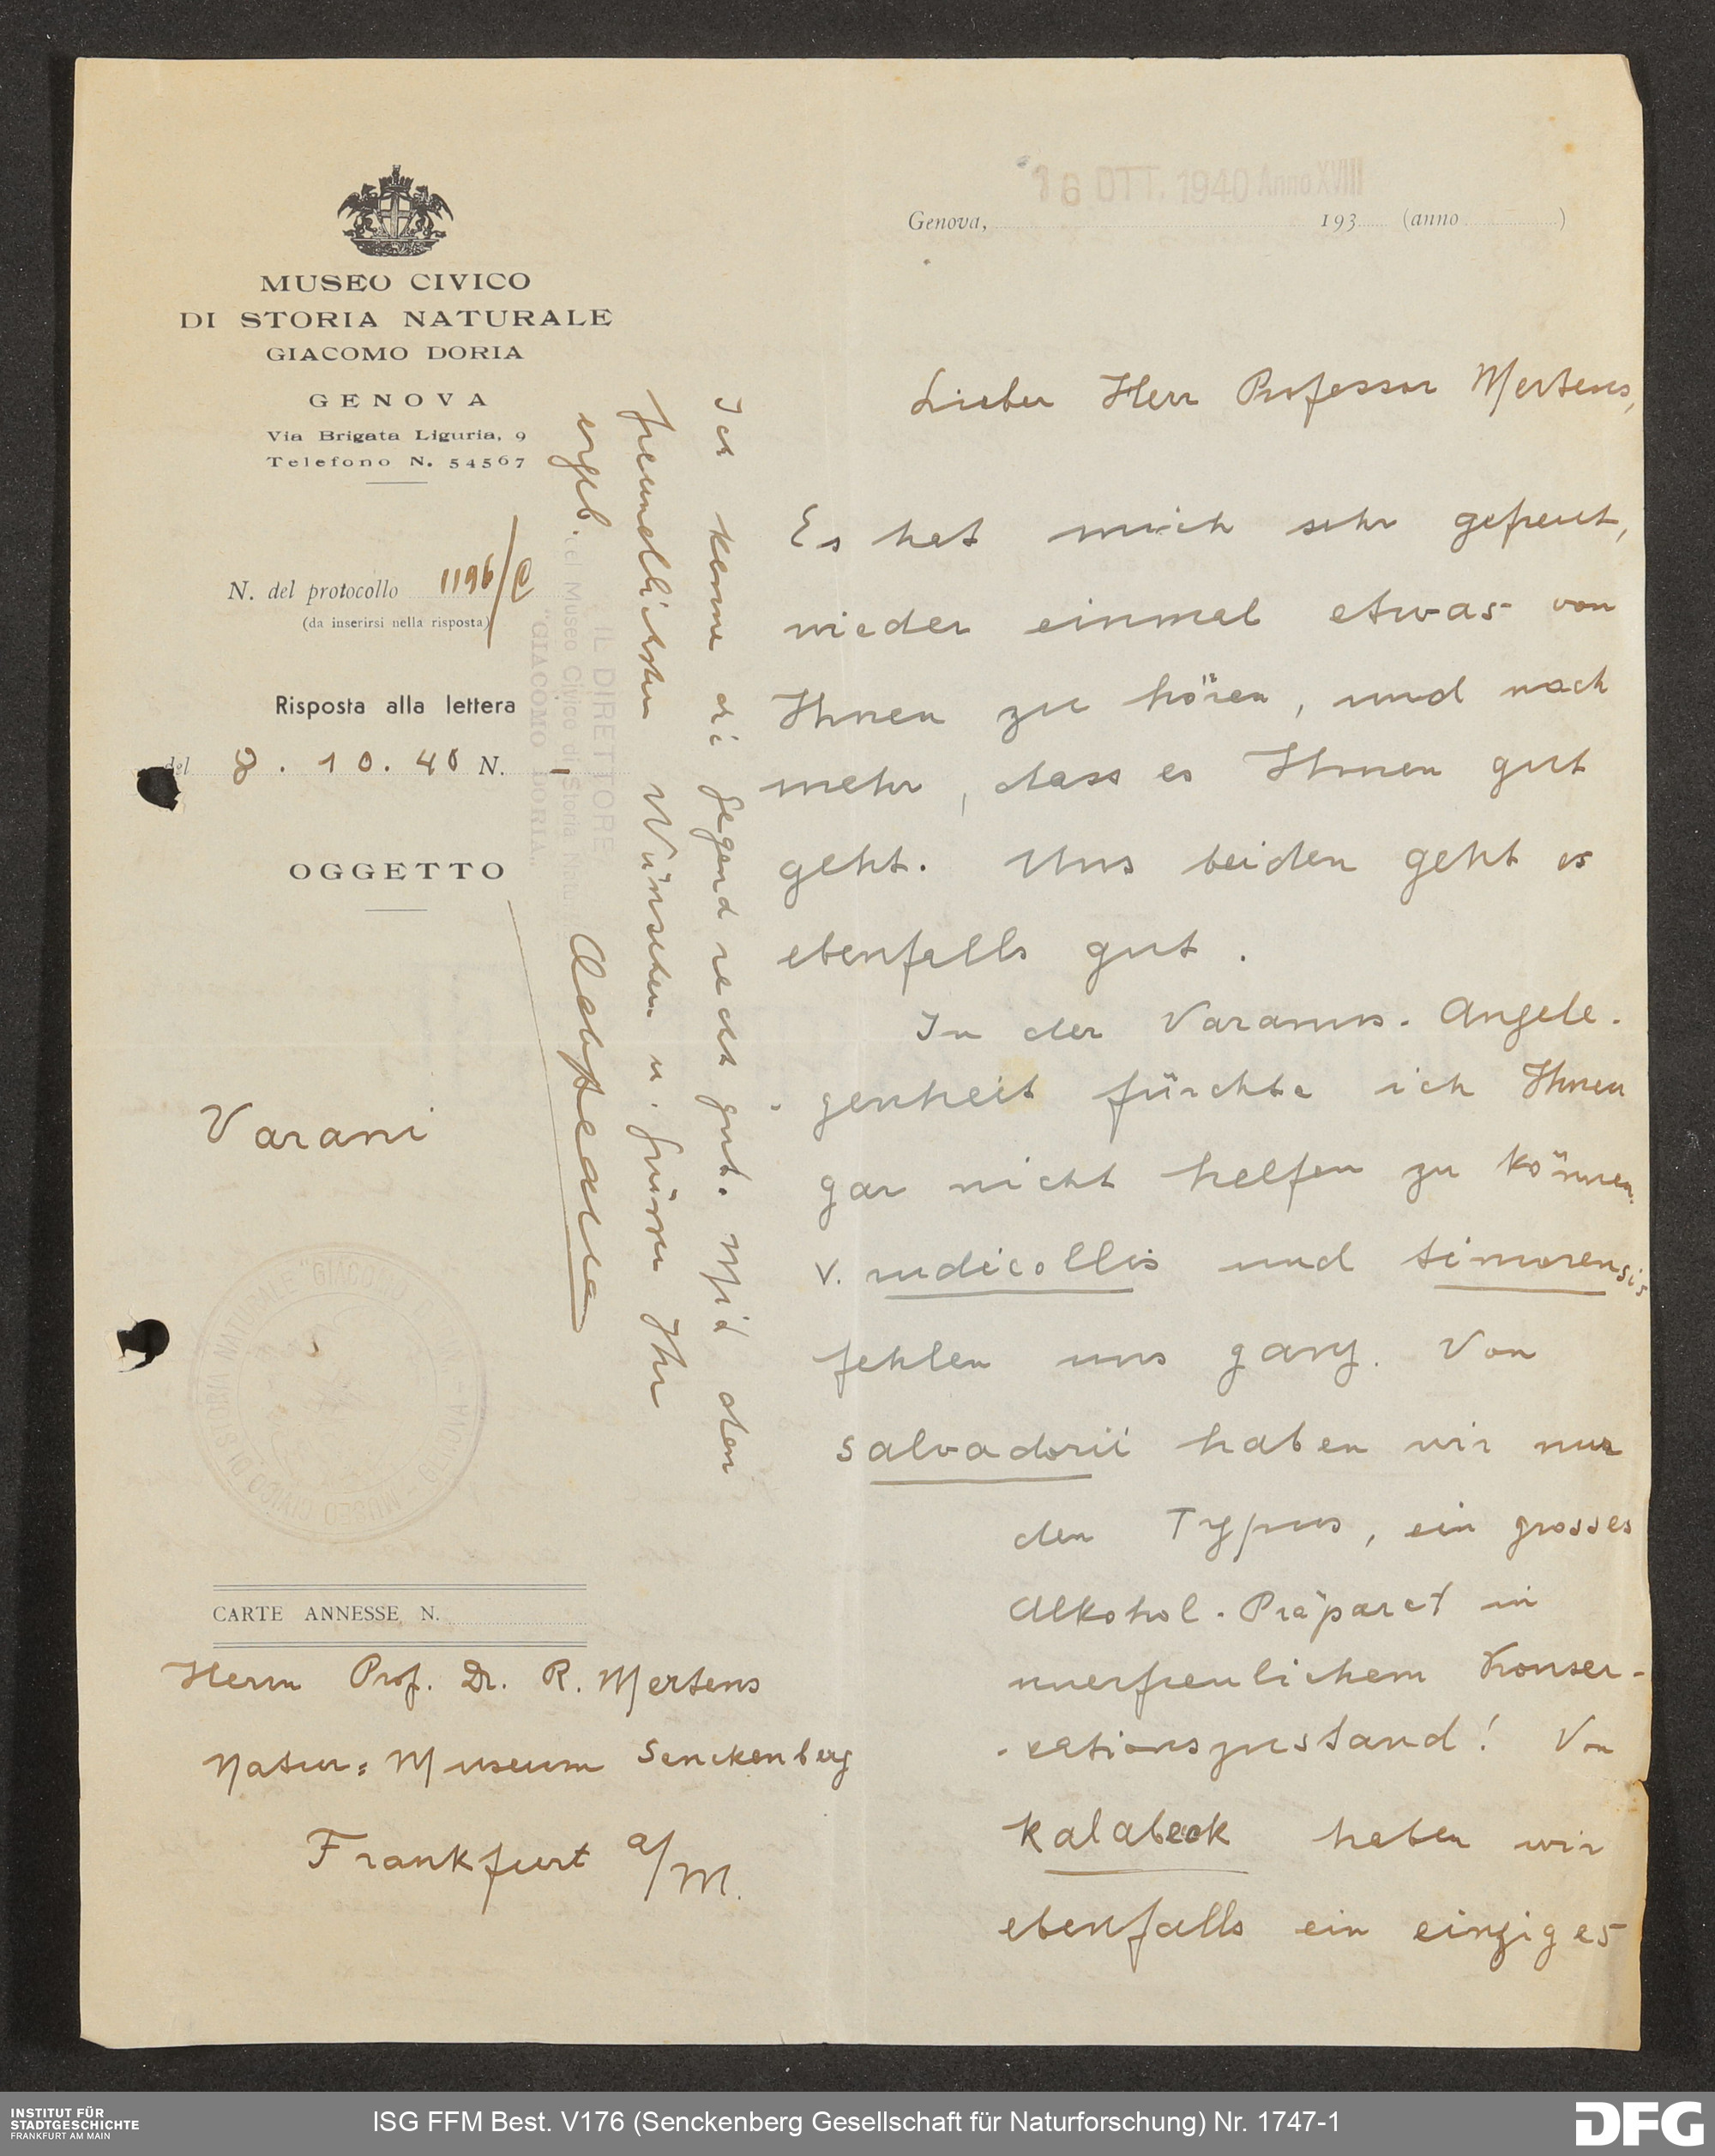 16 OTT. 1940 Anno XVIII
Genova, 193 (anno )
MUSEO CIVICO
DI STORIA NATURALE
GIACOMO DORIA
GENOVA
Via Brigata Liguria, 9
Telefono N. 54567
N. del protocollo 1196/C
(da inserirsi nella risposta)
Risposta alla lettera
del 8. 10. 40 N. -
OGGETTO
Varani
CARTE ANNESSE N.
Herrn Prof. Dr. R. Mertens
Natur=Museum Senckenberg
Frankfurt a/M.
Lieber Herr Professor Mertens,
Es hat mich sehr gefreut,
wieder einmal etwas von
Ihnen zu hören, und noch
mehr, dass es Ihnen gut
geht. Uns beiden geht es
ebenfalls gut.
In der Varanus-Angele-
genheit fürchte ich Ihnen
gar nicht helfen zu können.
V. rudicollis und timorensis
fehlen uns ganz. Von
salvadorii haben wir nur
den Typus, ein grosses
Alkohol-Präparat in
unerfreulichem Konser-
-vationszustand! Von
kalabeck haben wir
ebenfalls ein einziges
Ich kenne di Gegend recht gut. Mit den
freundlichsten Wünschen u. Grüssen Ihr
ergeb.
IL DIRETTORE
del Museo Civico di Storia Natu
"GIACOMO DORIA"
ISG FFM Best. V176 (Senckenberg Gesellschaft für Naturforschung) Nr. 1747-1
INSTITUT FÜR
STADTGESCHICHTE
FRANKFURT AM MAIN
DFG